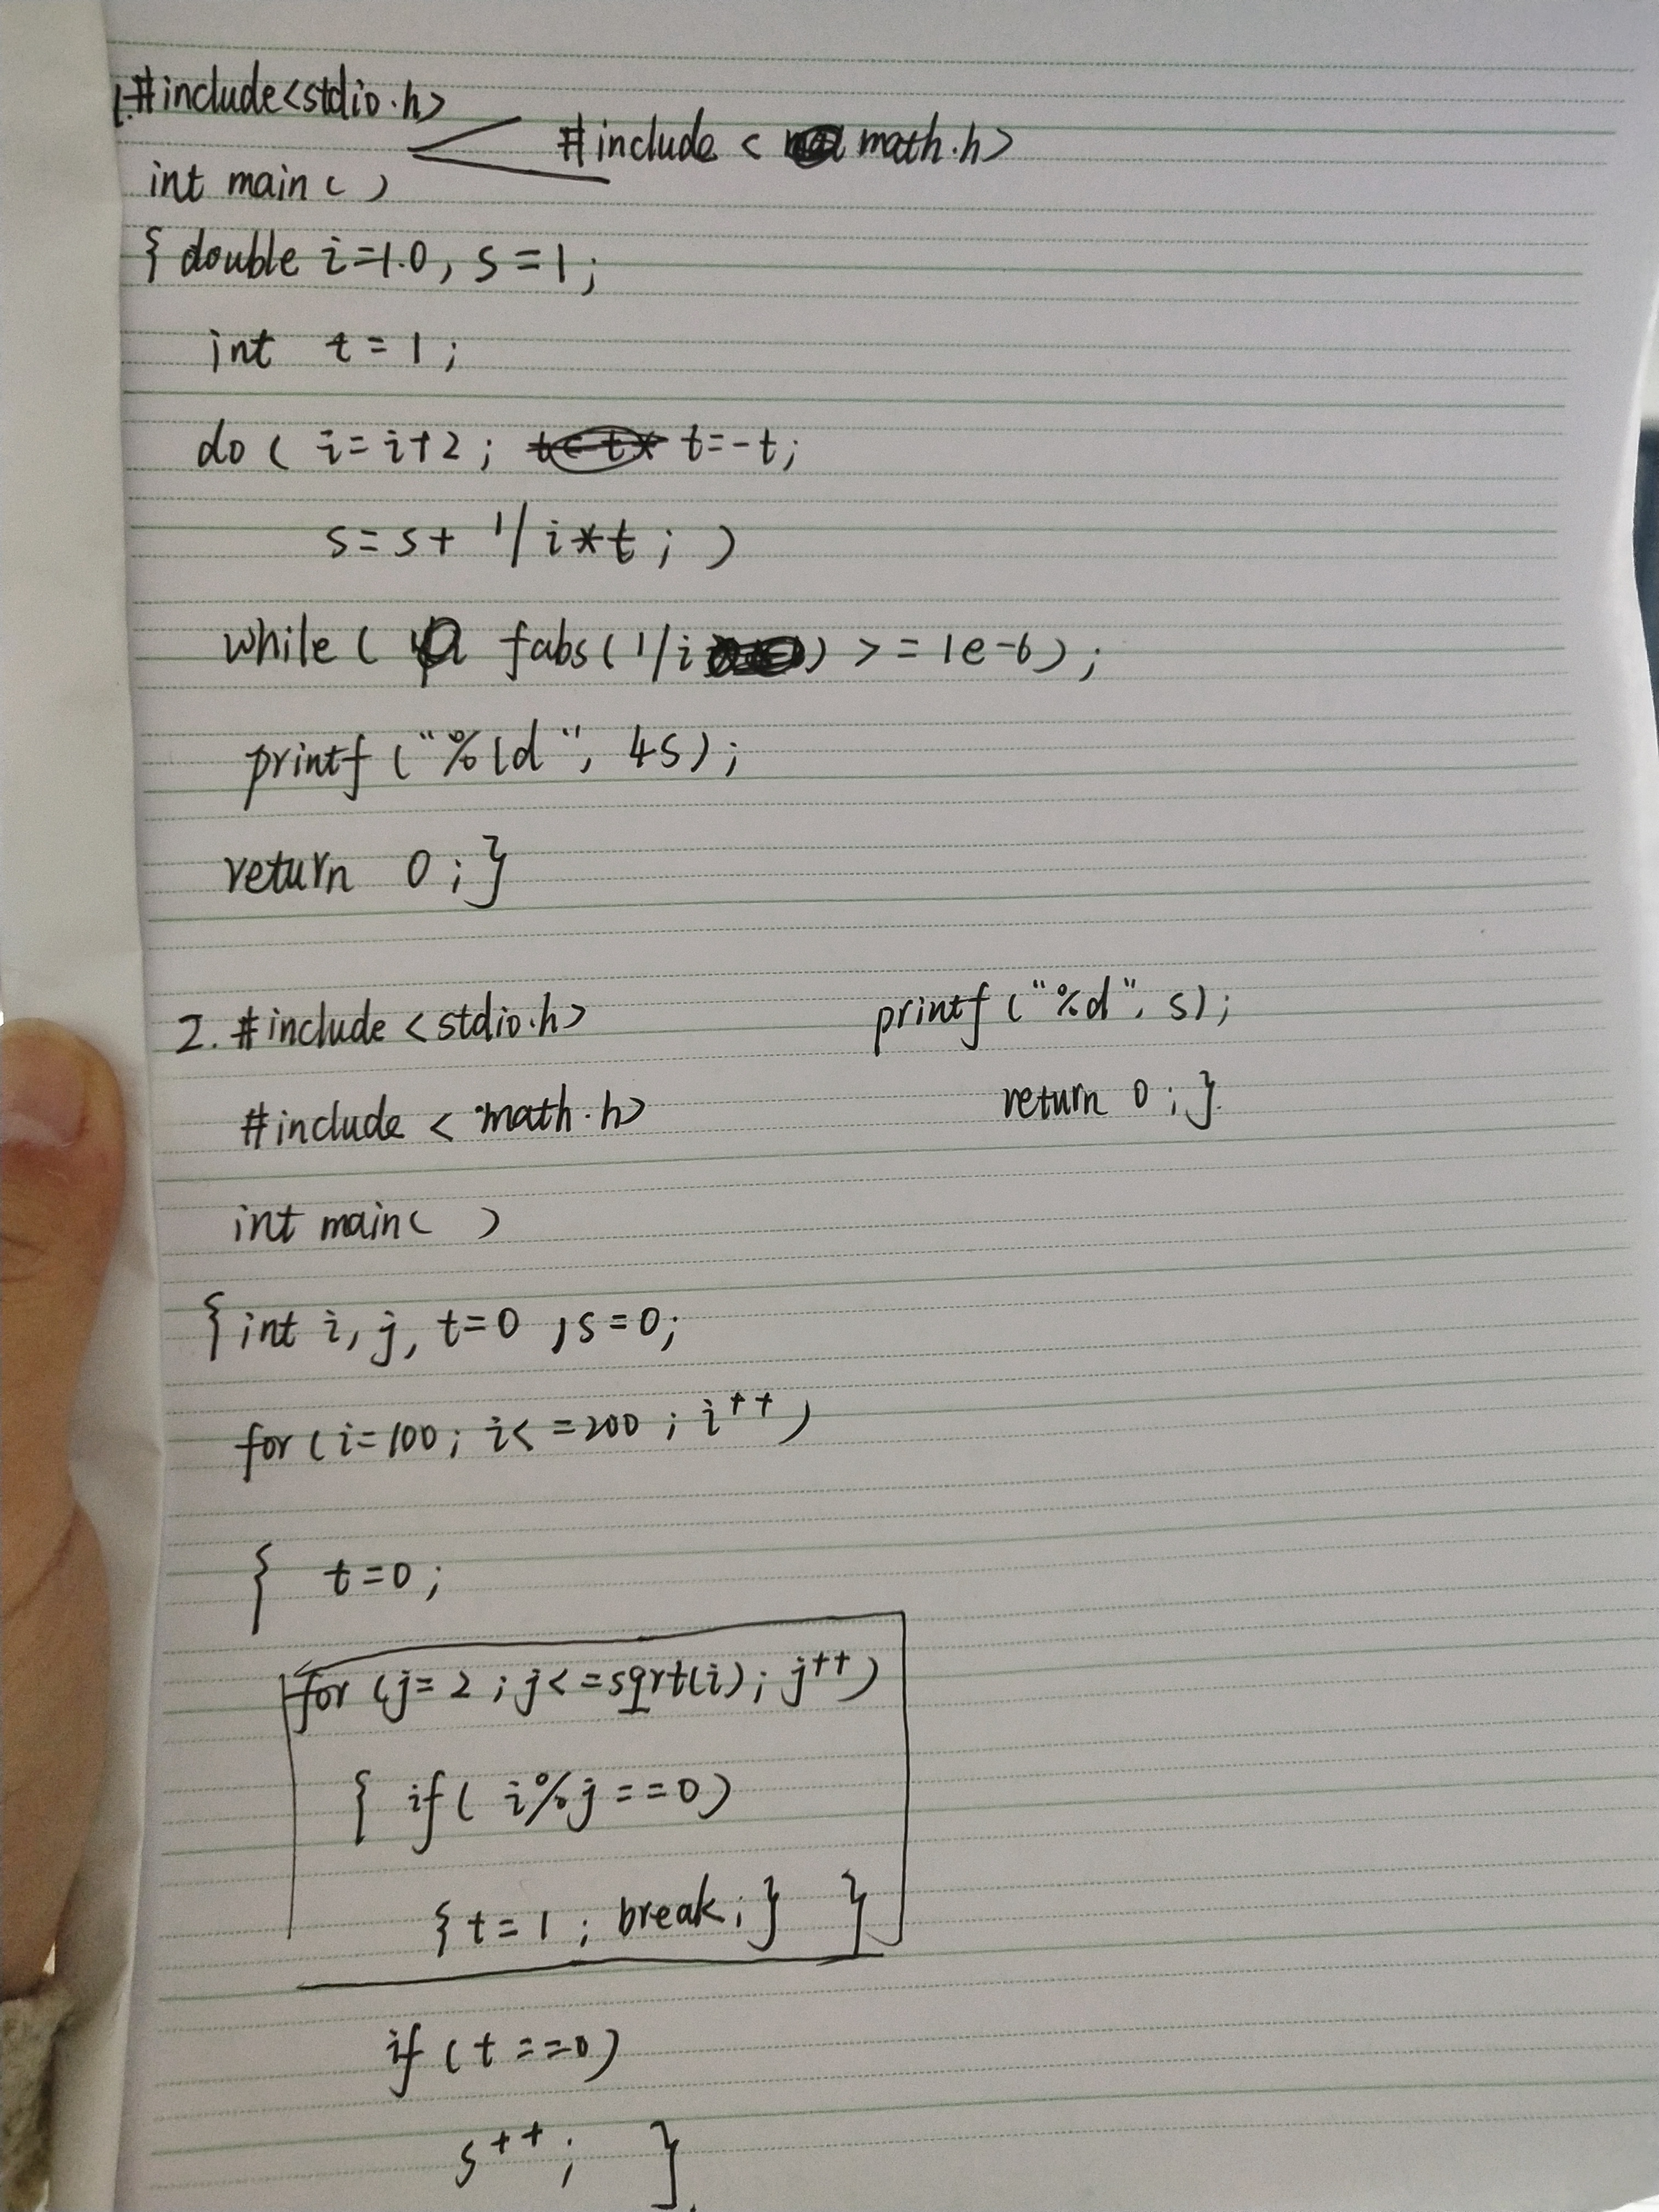 1.#include<stdio.h>
#include < math.h>
int main ( )
{ double i=1.0, s=1;
int t=1;
do ( i=i+2; t=-t;
s=s+ 1/i*t; )
while ( fabs(1/i) >=1e-6);
printf ("%ld", 4s);
return 0;}
2. #include <stdio.h>
#include < math.h>
int main( )
{ int i, j, t=0 ,s=0;
for (i=100; i<=200; i++)
{ t=0;
for (j=2; j<=sqrt(i); j++)
{ if( i%j==0)
{t=1; break;} }
if (t==0)
s++; }
printf ("%d", s);
return 0; }